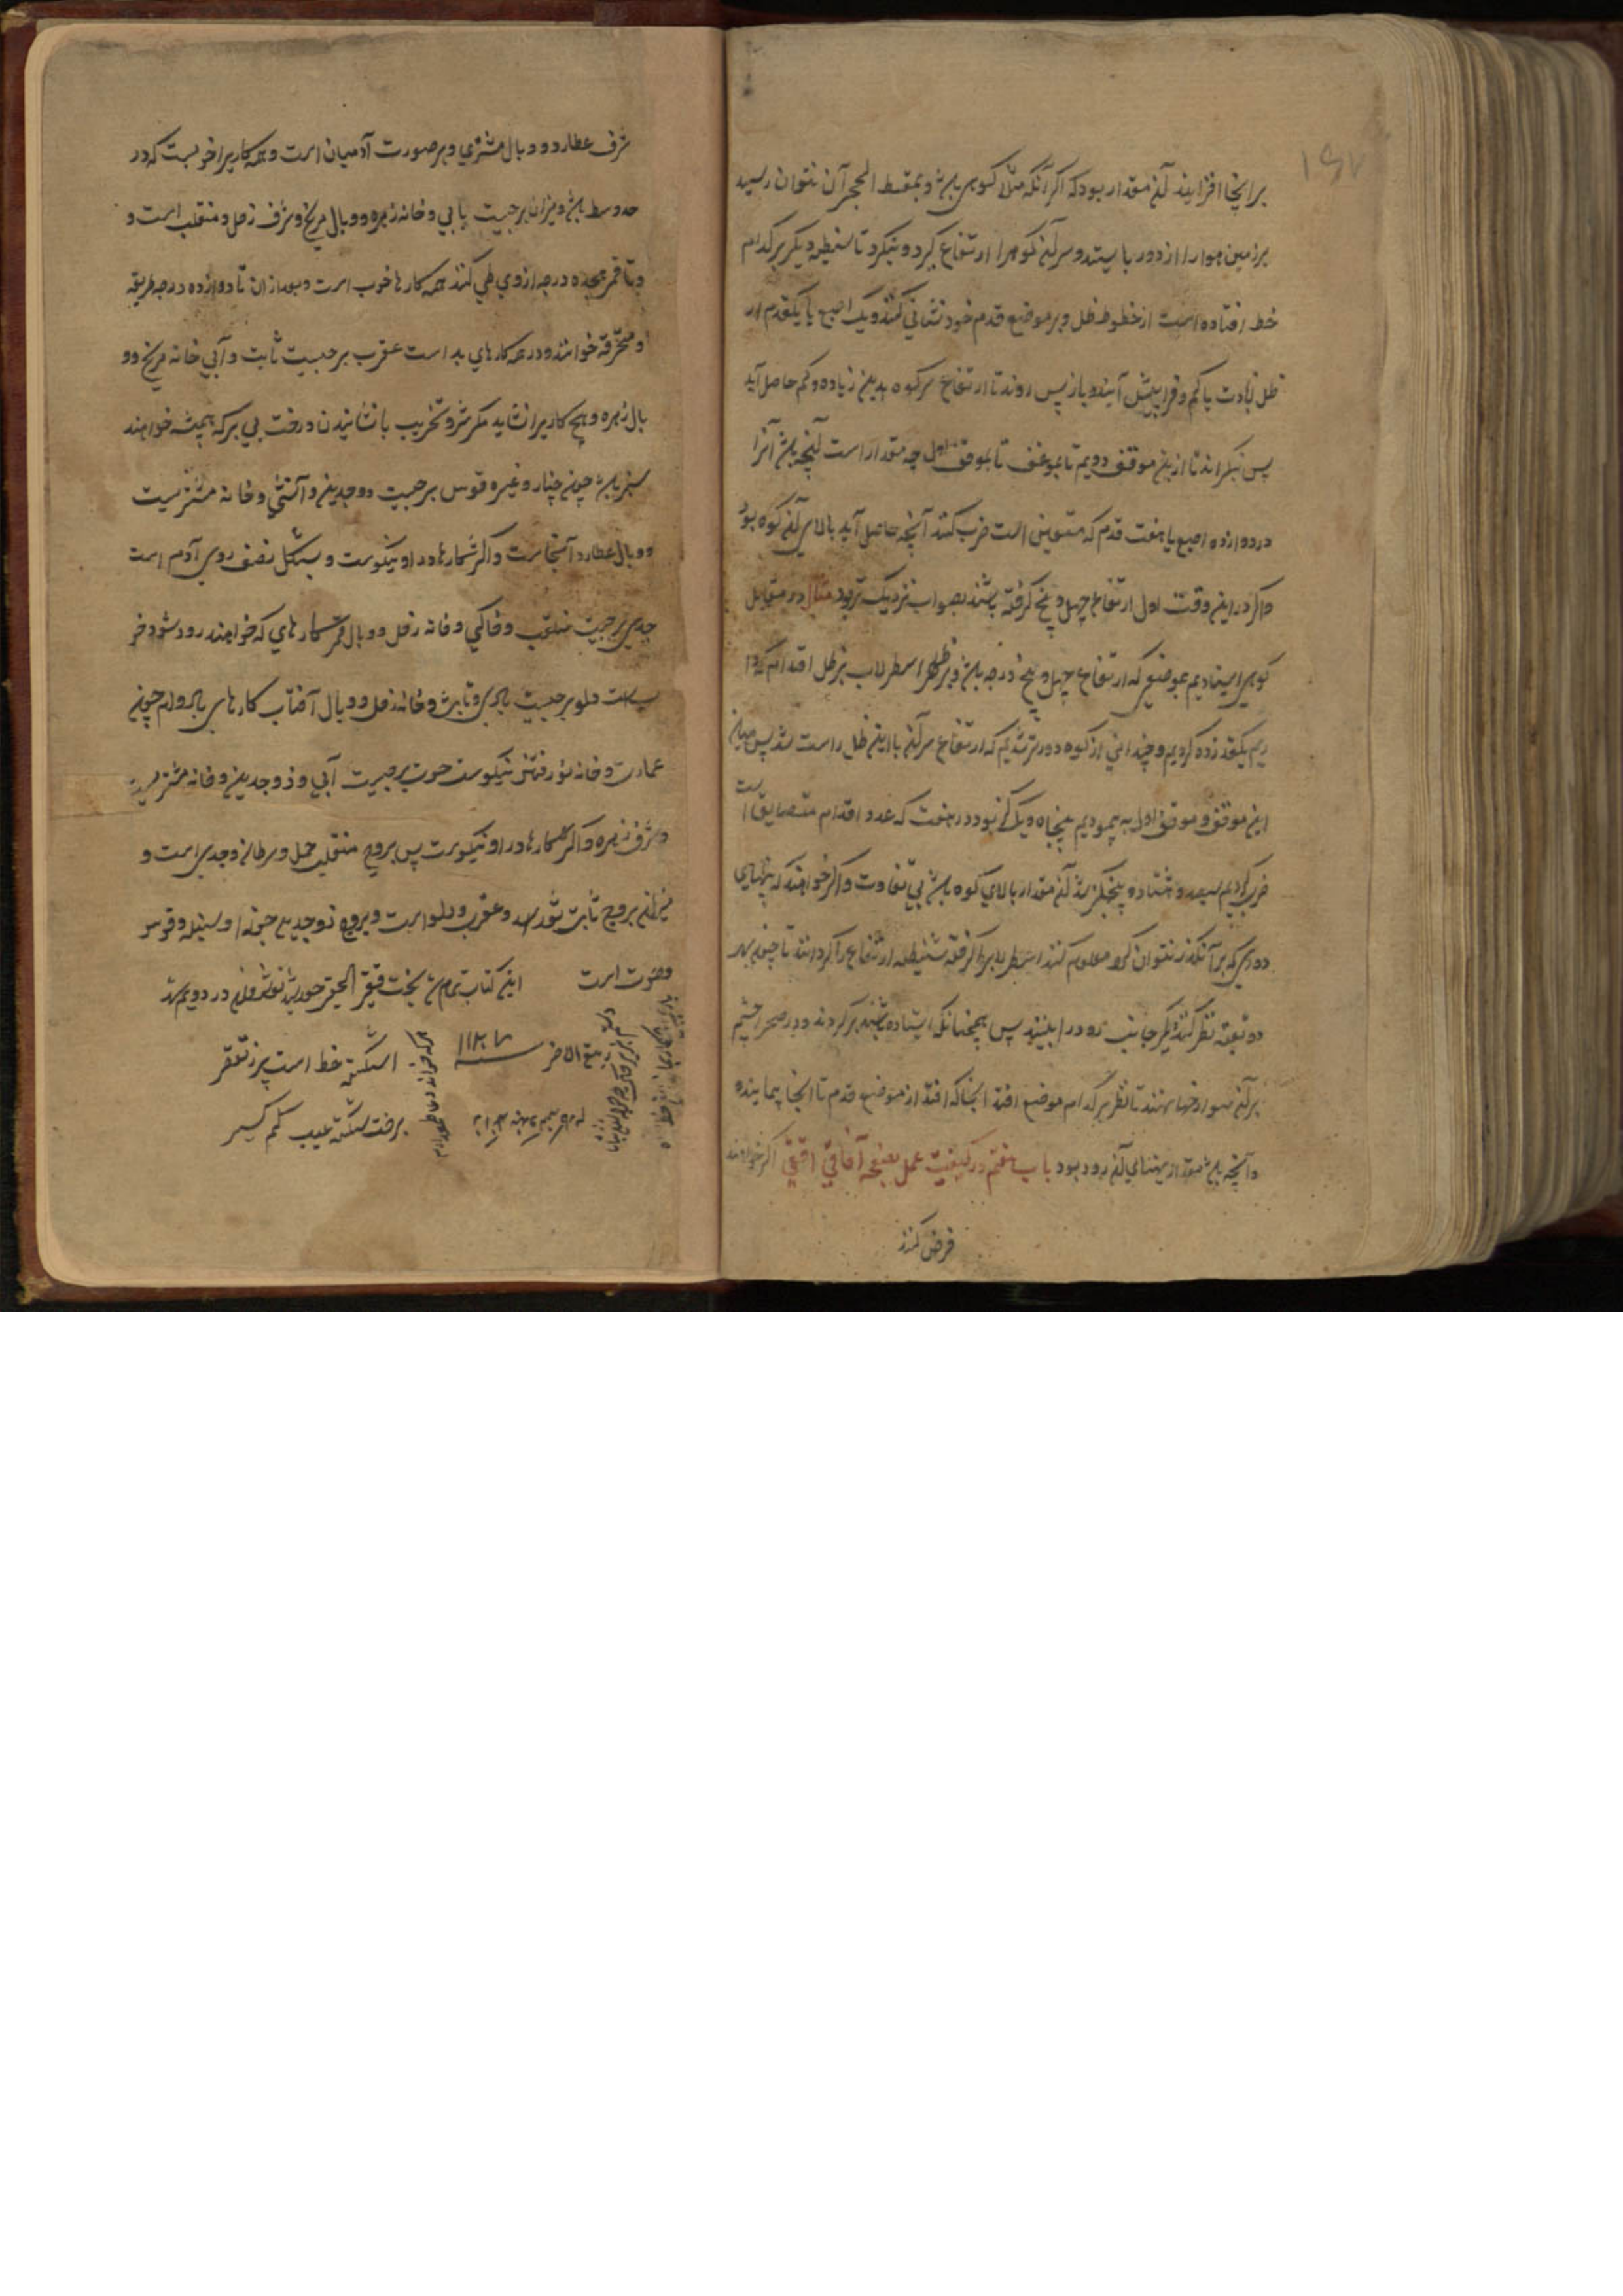 بر اینجا افزایند آن مقدار بود که اگر آنکه مثلا کوهی باشد و بمقسط الحجر آن نتوان رسید
بر زمین هموار از دور بایستند و سر آن کوه را ارتفاع گیرد و بنگرد تا شظیه دیگر بر کدام
خط افتاده است از خطوط ظل و بر موضع قدم خود نشانی کنند و یک اصبع یا یکقدم از
ظل زیادت یا کم و فراپیش آیند و باز پس روند تا ارتفاع سر کوه بدین زیاده و کم حاصل آید
پس بنگرند تا ازین موقف دویم تا بموقف اول چه مقدار است آنچه باشد آنرا
در دوازده اصبع یا هفت قدم که مقیاس است ضرب کنند آنچه حاصل آید بالای آن کوه بود
و اگر در این وقت اول ارتفاع چهل و پنج گرفته باشند بصواب نزدیک تر بود مثال در مقابل
کوهی ایستادیم بموضعی که ارتفاع چهل و پنج درجه باشد و بر ظهر اسطرلاب بر ظل اقدام که دا
ریم یکقد زده کردیم و چندانی از کوه دورتر شدیم که ارتفاع سر آن با این ظل راست شد پس میان
این موقف و موقف اول به پیمودیم پنجاه و یک گز بود در هفت که عدد اقدام است
ضرب کردیم سیصد و پنجگز شد آن مقدار بالای کوه باشد بی تفاوت و اگر خواهند که پهنای
رودی که بر آن گذر نتوان کرد معلوم کنند اسطرلاب برگرفته شظیه ارتفاع را گردانند تا چون بهر
دو ثقبه نظر کنند دیگر جانب رود را ببینند پس همچنانکه ایستاده باشند برگردند و در صحرا چشم
بر آن سوراخها نهند تا نظر بر کدام موضع افتد آنجا که افتد از موضع قدم تا آنجا پیمایند
و آنچه باشد مقدار پهنای آن رود بود باب هفتم در کیفیت عمل بصفحه آفاقی افقی اگر خواهند
فرض کنند
شرف عطارد و وبال مشتری و بر صورت آدمیان است و همه کاریرا خوبست که در
حد وسط باشد میزان برجیست بابی و خانه زهره و وبال مریخ و شرف زحل و منقلب است و
و تا قمر هجده درجه از وی طی کند همه کارها خوب است و بعد ازان تا دوازده درجه طریقه
و محترقه خوانند و در همه کارهای بد است عقرب برجیست ثابت و آبی خانه مریخ و و
بال زهره و هیچ کاریرا نشاید مگر شر و تخریب یا نشانیدن درخت بی بر که همیشه خواهند
سبز باشد چون چنار و غیره قوس برجیست ذوجدین و آتشی و خانه مشتریست
و وبال عطارد آنجاست و اکثر شمارها در او نیکوست و بشکل نصف روی آدم است
جدی برجیست منقلب و خاکی و خانه زحل و وبال قمر شمارهای که خواهند زود شود خو
بست دلو برجیست بادی و ثابت و خانه زحل و وبال آفتاب کارهای بادوام چون
عمارت و خانه نو رفتن نیکوست حوت برجیست آبی و ذوجدین و خانه مشتریست
و شرف زهره و اکثر شمارها در او نیکوست پس بروج منقلب حمل و سرطان و جدی است و
میزان بروج ثابت ثور اسد و عقرب و دلو است و بروج ذوجدین جوزا و سنبله و قوس
و حوت است این کتاب تمام شد بخت فقیر الحقیر در دویم شهر
ربیع الآخر سنه
اشکسته خط است پر ز تقصر
بر خت شکسته عیب کم گیر
هر که خواند دعا طمع دارم